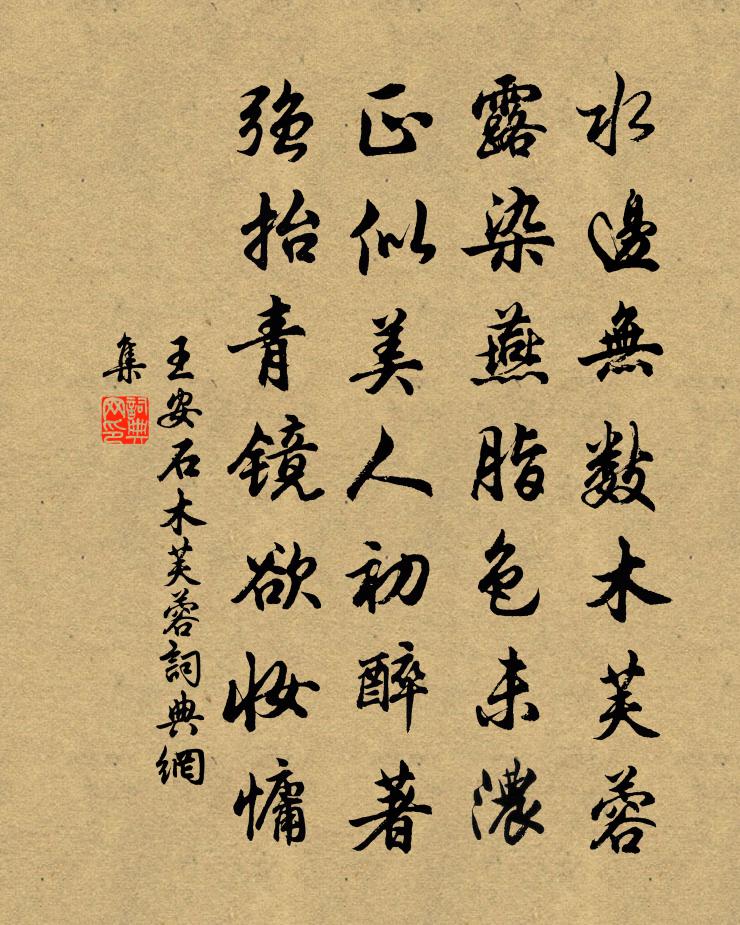 水邊無數木芙蓉
露染燕脂色未濃
正似美人初醉著
強抬青镜欲妝慵
王安石木芙蓉詞典網
集
詞典
网印